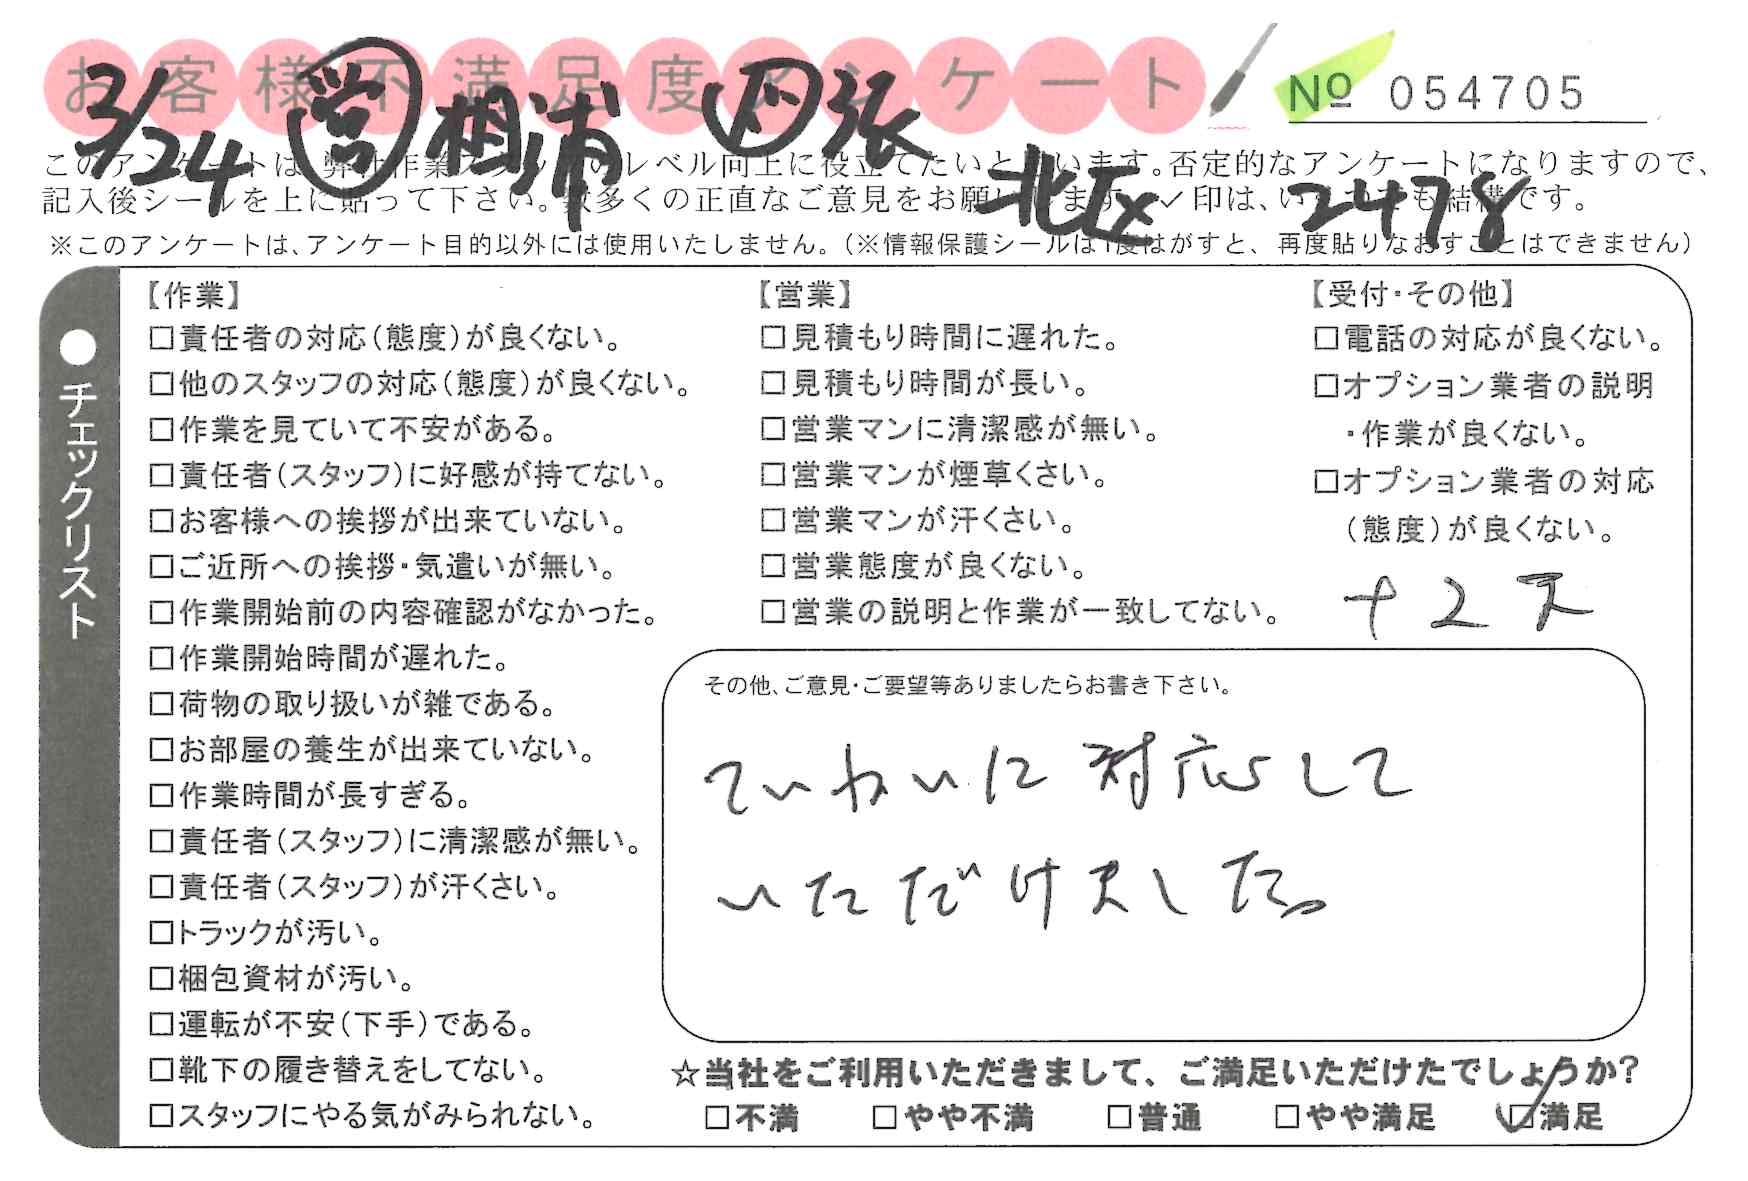 お客様不満足度アンケート
No 054705
3/24 営 相浦 張
北区 2478
このアンケートは、弊社作業スタッフのレベル向上に役立てたいと思います。否定的なアンケートになりますので、
記入後シールを上に貼って下さい。数多くの正直なご意見をお願いします。✓印は、いくつでも結構です。
※このアンケートは、アンケート目的以外には使用いたしません。(※情報保護シールは1度はがすと、再度貼りなおすことはできません)
●チェックリスト
【作業】
□責任者の対応(態度)が良くない。
□他のスタッフの対応(態度)が良くない。
□作業を見ていて不安がある。
□責任者(スタッフ)に好感が持てない。
□お客様への挨拶が出来ていない。
□ご近所への挨拶・気遣いが無い。
□作業開始前の内容確認がなかった。
□作業開始時間が遅れた。
□荷物の取り扱いが雑である。
□お部屋の養生が出来ていない。
□作業時間が長すぎる。
□責任者(スタッフ)に清潔感が無い。
□責任者(スタッフ)が汗くさい。
□トラックが汚い。
□梱包資材が汚い。
□運転が不安(下手)である。
□靴下の履き替えをしてない。
□スタッフにやる気がみられない。
【営業】
□見積もり時間に遅れた。
□見積もり時間が長い。
□営業マンに清潔感が無い。
□営業マンが煙草くさい。
□営業マンが汗くさい。
□営業態度が良くない。
□営業の説明と作業が一致してない。
【受付・その他】
□電話の対応が良くない。
□オプション業者の説明
・作業が良くない。
□オプション業者の対応
(態度)が良くない。
その他、ご意見・ご要望等ありましたらお書き下さい。
ていねいに対応して
いただけました。
☆当社をご利用いただきまして、ご満足いただけたでしょうか?
□不満 □やや不満 □普通 □やや満足 ☑満足